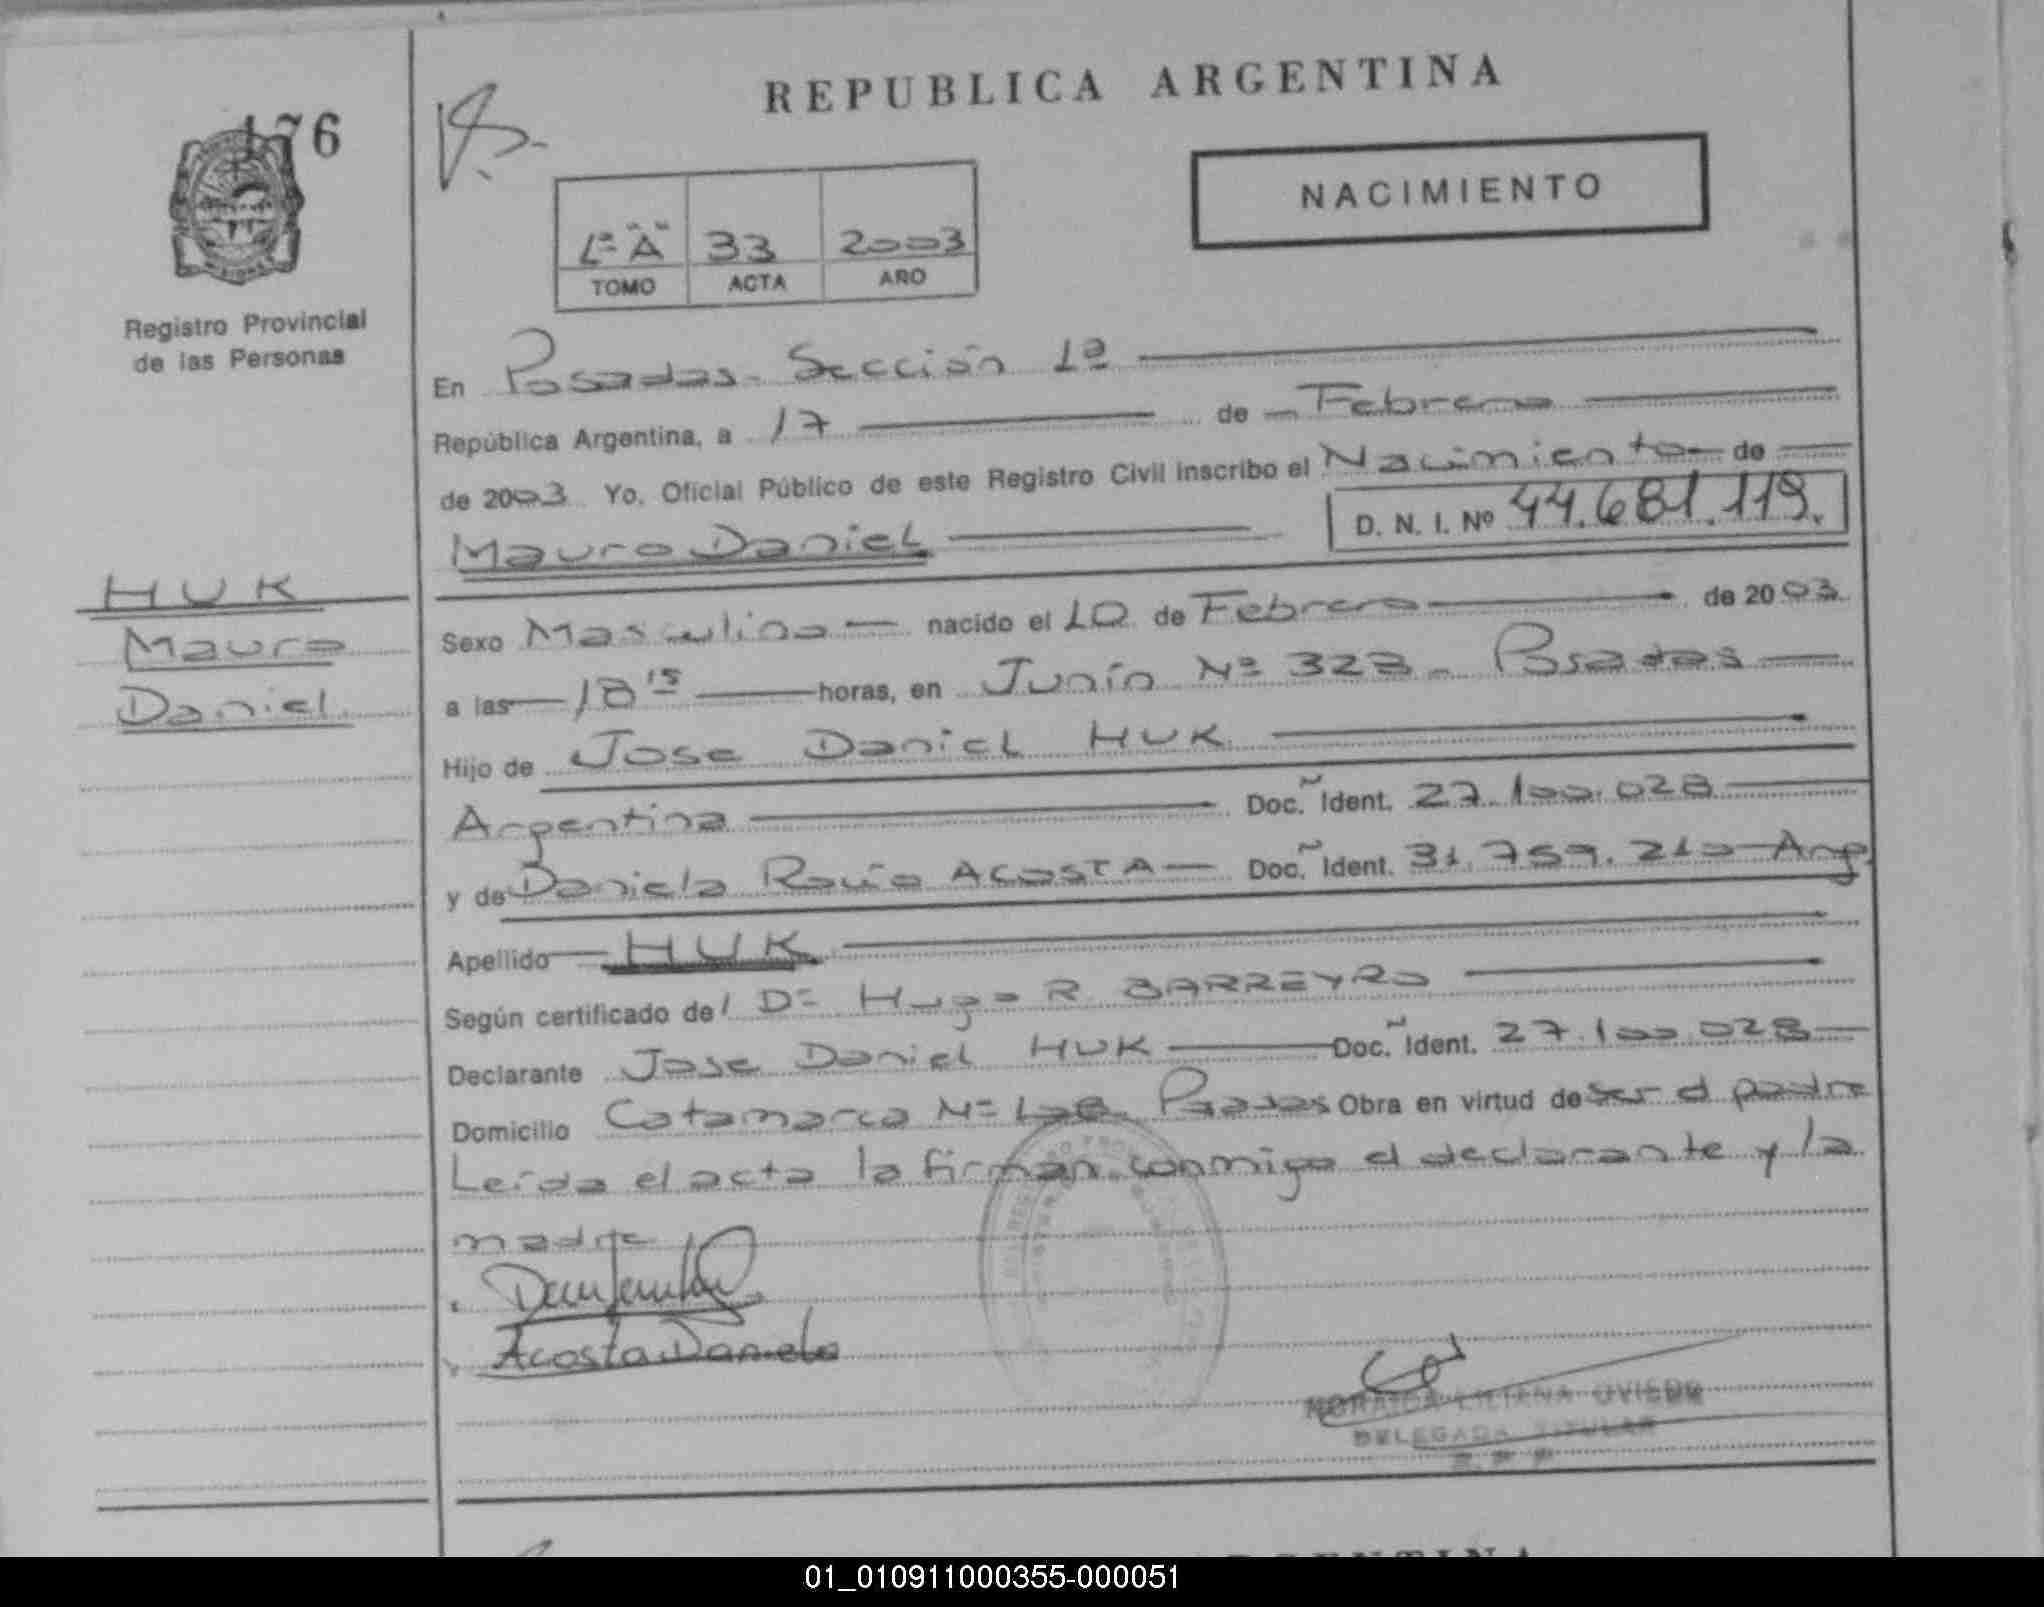 REPUBLICA ARGENTINA
176
NACIMIENTO
1º "A" 33 2003
TOMO ACTA AÑO
Registro Provincial
de las Personas
En Posadas - Sección 1ª
República Argentina, a 17 de Febrero
de 2003 Yo, Oficial Público de este Registro Civil inscribo el Nacimiento de
Mauro Daniel D. N. I. Nº 44.681.119.
HUK
Mauro
Daniel
Sexo Masculino nacido el 10 de Febrero de 2003
a las 18 15 horas, en Junín Nº 323 - Posadas
Hijo de Jose Daniel HUK
Argentina Doc. Ident. 27.100.028
y de Daniela Rocío ACOSTA Doc. Ident. 31.759.210 - Arg.
Apellido HUK
Según certificado de/ Dr Hugo R. BARREYRO
Declarante Jose Daniel HUK Doc. Ident. 27.100.028
Domicilio Catamarca Nº Posadas Obra en virtud de ser el padre
Leída el acta la firman conmigo el declarante y la
madre
Acosta Daniela
NORAIDA LILIANA OVIEDO
DELEGADA TITULAR
ARGENTINA
01_010911000355-000051